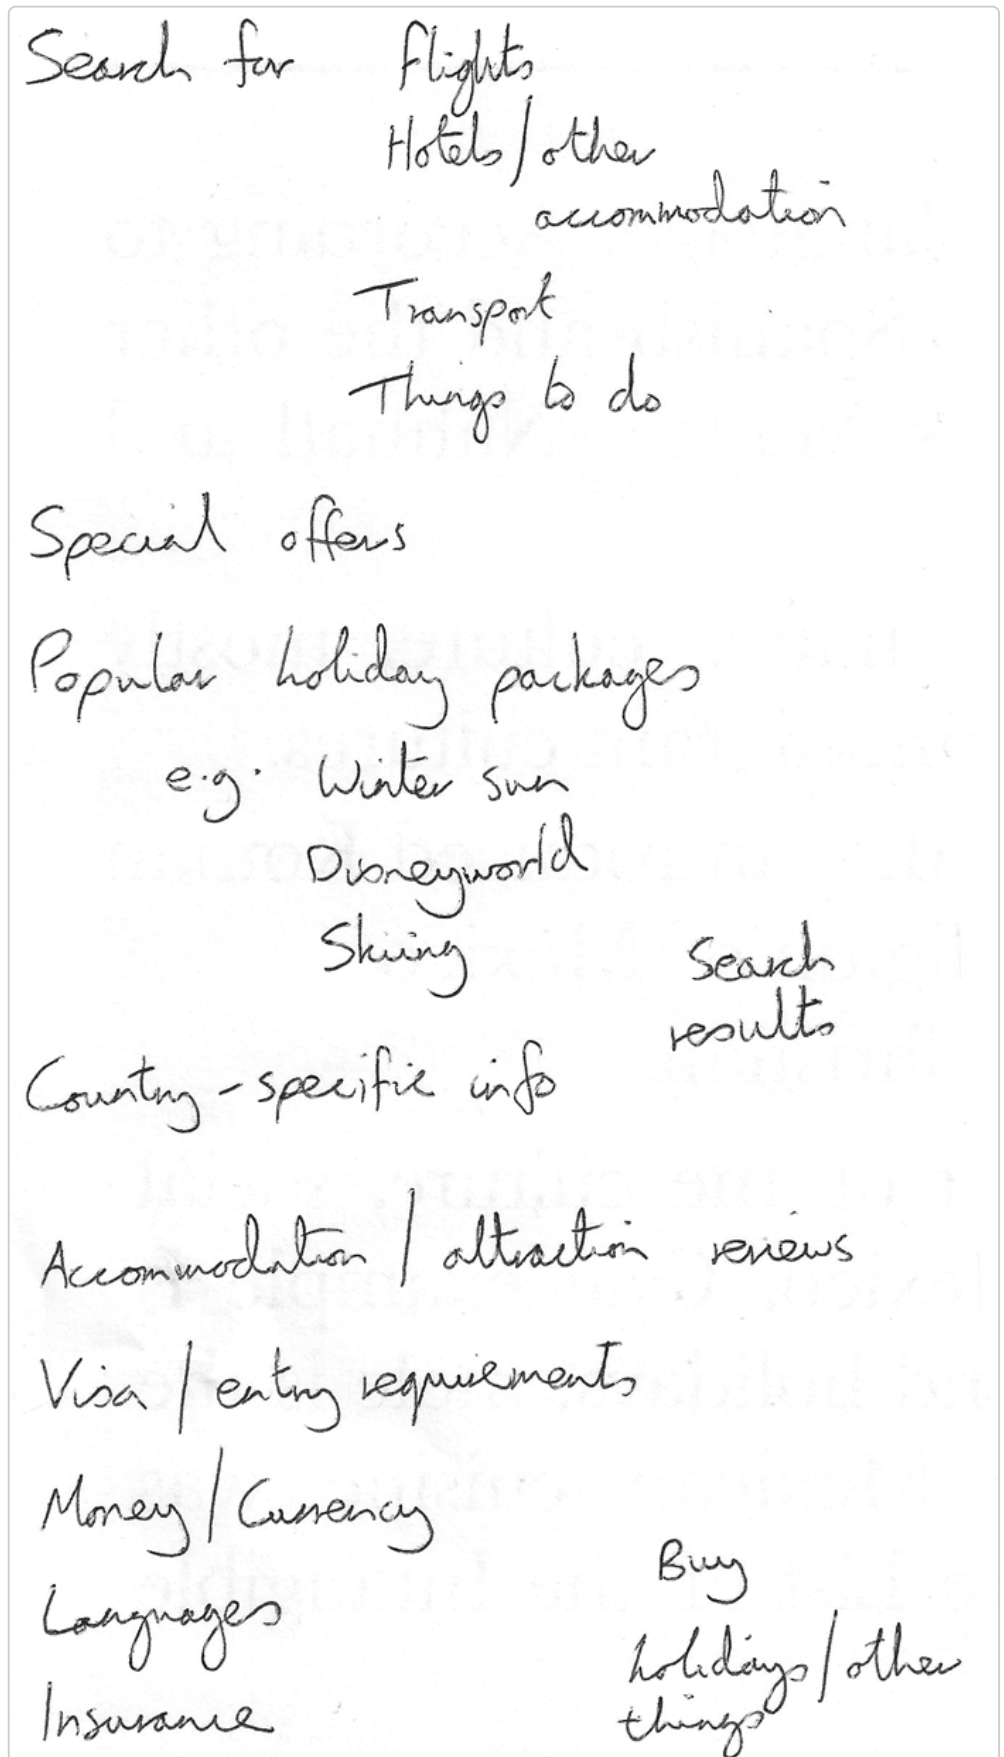 Search for flights
Hotels/other
accommodation
Transport
Things to do
Special offers
Popular holiday packages
e.g. Winter sun
Disneyworld
Skiing
Search
results
Country-specific info
Accommodation / attraction reviews
Visa / entry requirements
Money / Currency
Languages
Insurance
Buy
holidays / other
things